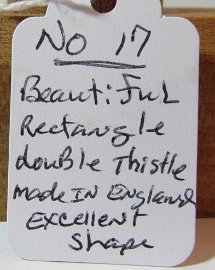 No 17
Beautiful
Rectangle
double Thistle
made IN England
Excellent
Shape